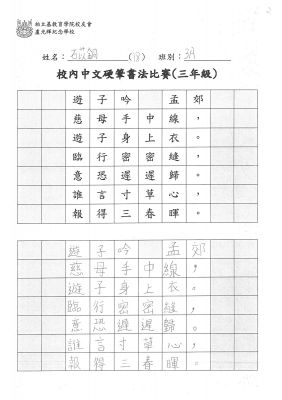 柏立基教育學院校友會
盧光輝紀念學校
姓名: (18) 班別: 3A
校內中文硬筆書法比賽(三年級)
遊子吟 孟郊
慈母手中線,
遊子身上衣。
臨行密密縫,
意恐遲遲歸。
誰言寸草心,
報得三春暉。
遊子吟 孟郊
慈母手中線,
遊子身上衣。
臨行密密縫,
意恐遲遲歸。
誰言寸草心,
報得三春暉。